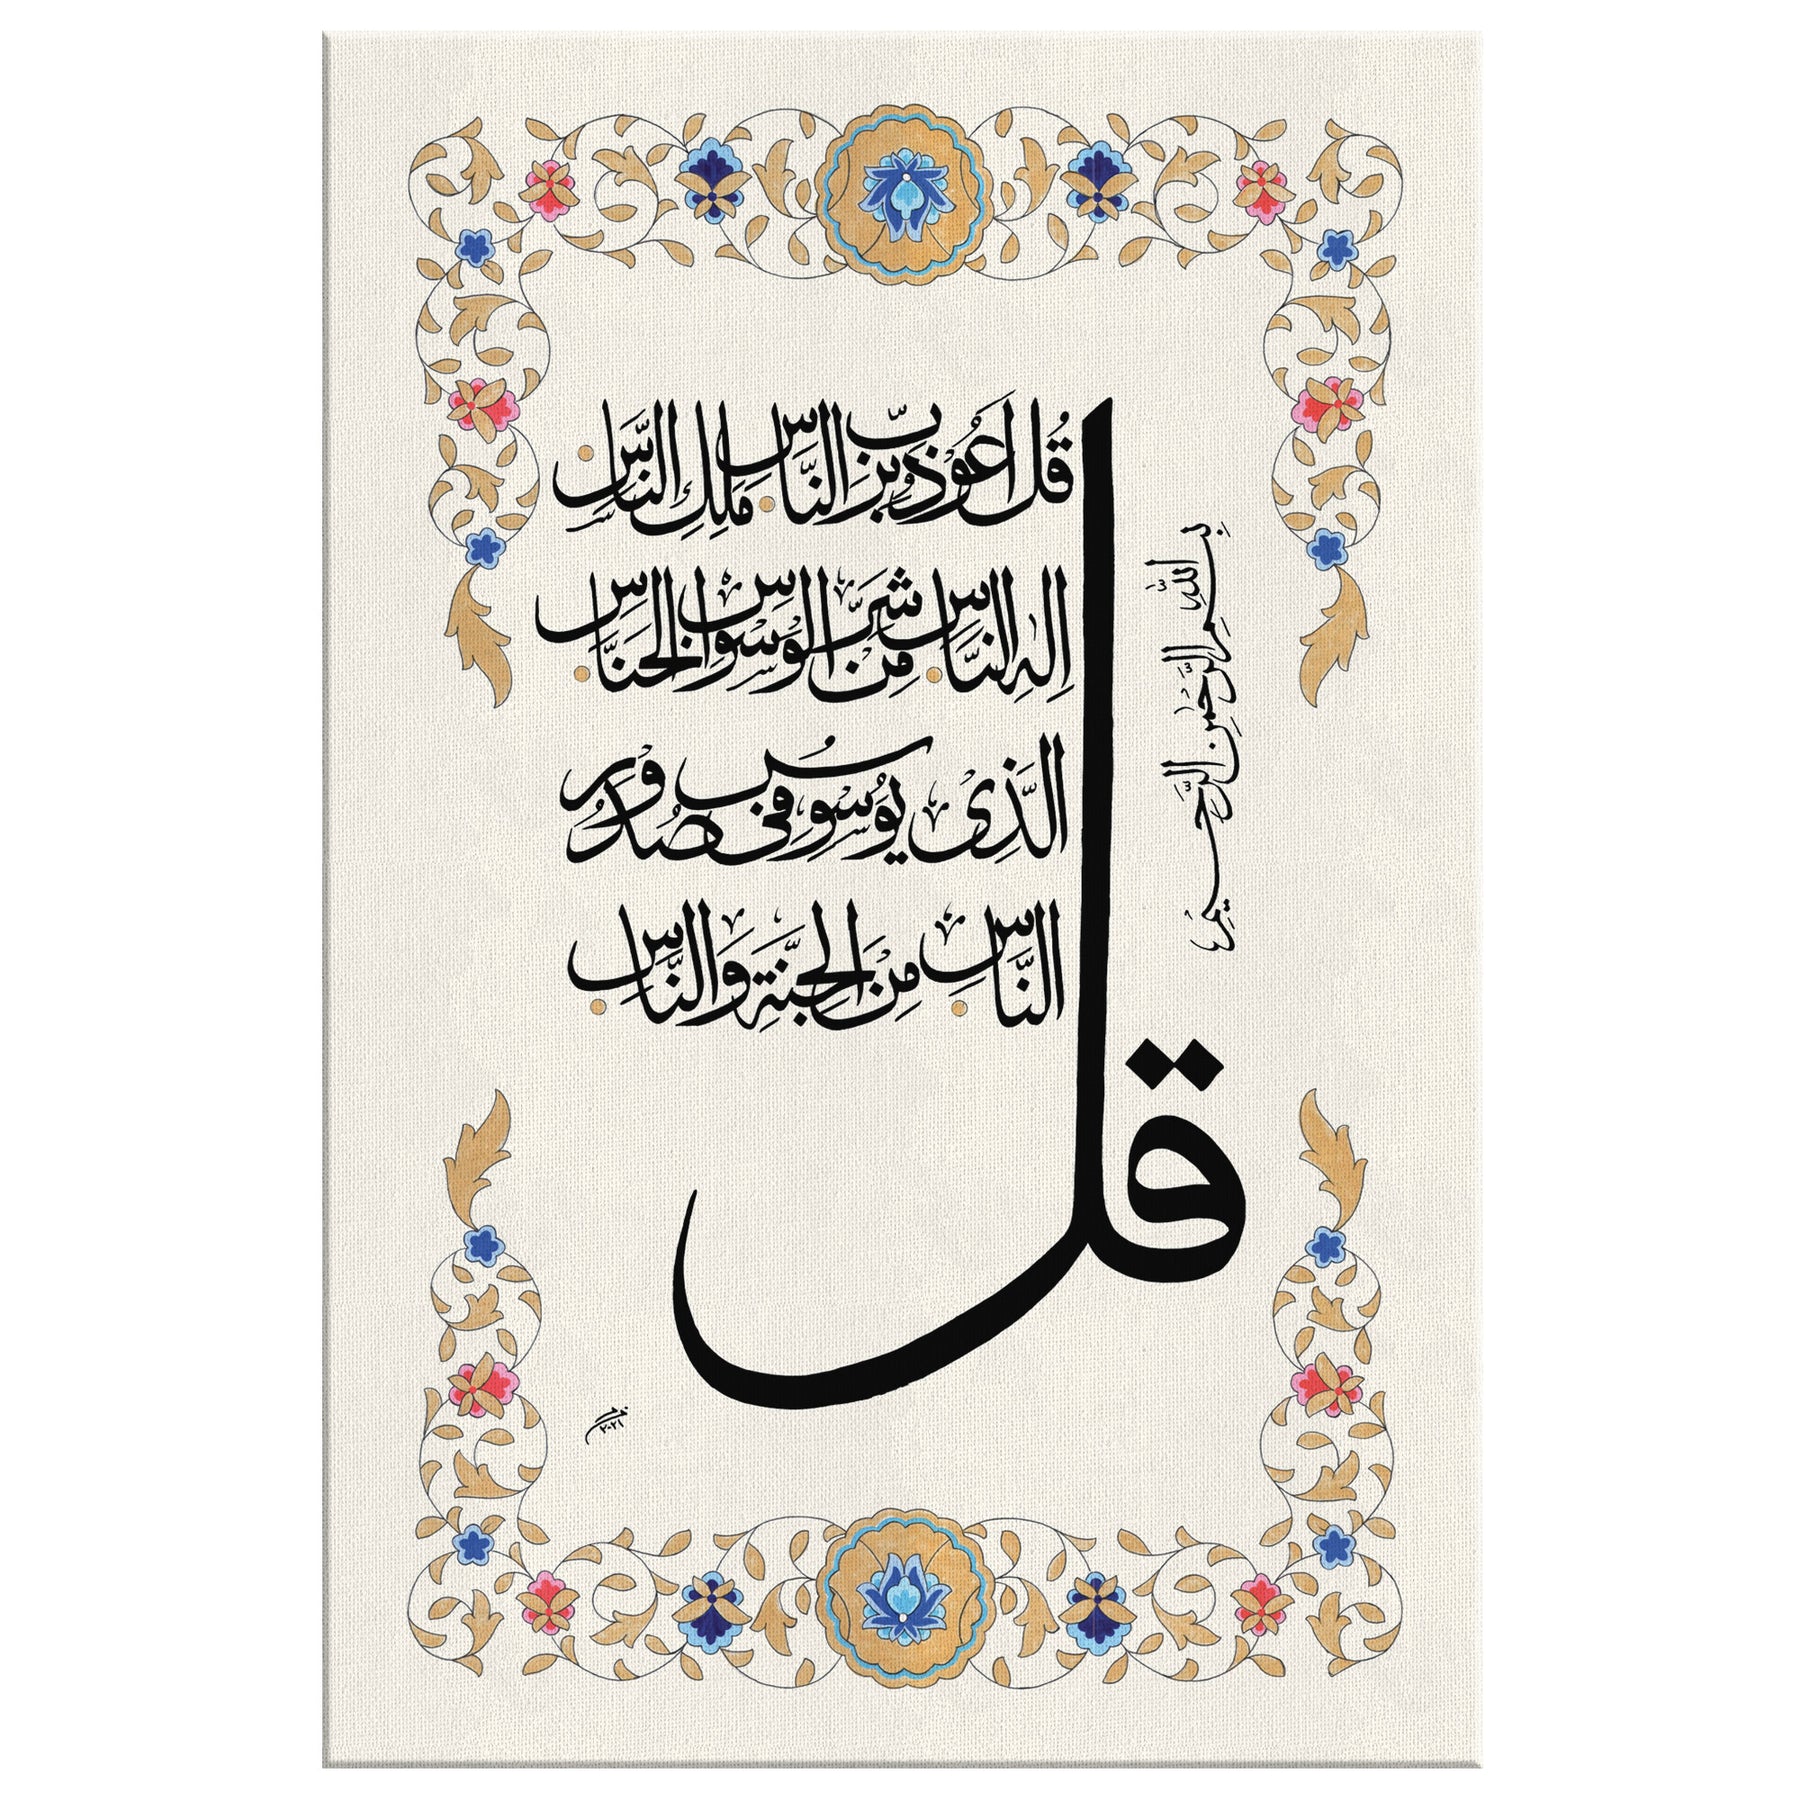 بِسْمِ اللّٰهِ الرَّحْمٰنِ الرَّحِيمِ
قُلْ اَعُوْذُ بِرَبِّ النَّاسِ مَلِكِ النَّاسِ
اِلٰهِ النَّاسِ مِنْ شَرِّ الْوَسْوَاسِ الْخَنَّاسِ
الَّذِىْ يُوَسْوِسُ فِىْ صُدُوْرِ
النَّاسِ مِنَ الْجِنَّةِ وَالنَّاسِ
قل
٢٠٢١